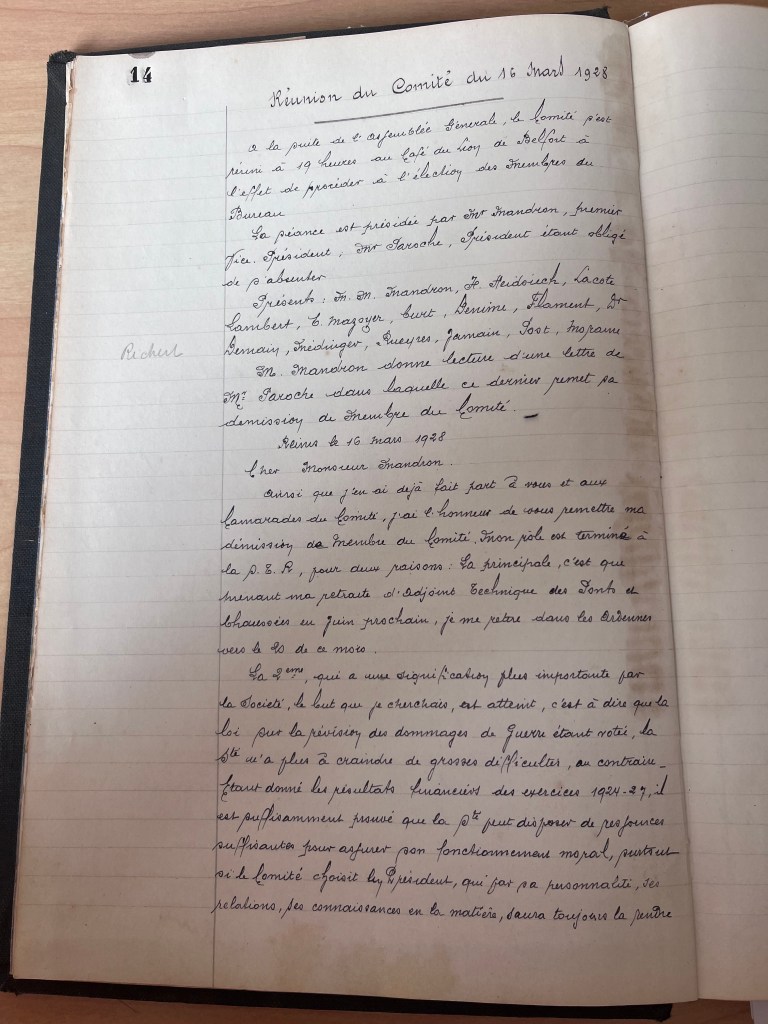 14
Réunion du Comité du 16 Mars 1928
A la suite de l'Assemblée Générale, le Comité s'est
réuni à 19 heures au Café du Lion de Belfort à
l'effet de procéder à l'élection des Membres du
Bureau
La séance est présidée par Mr Mandron, premier
Vice-Président, Mr Paroche, Président étant obligé
de s'absenter
Présents : M. M. Mandron, H. Heidsieck, Lacote
Lambert, E. Mazoyer, Curt, Denime, Flament, Dr
Demain, Médinger, Rueyres, Jamain, Post, Moraine
Richert
M. Mandron donne lecture d'une lettre de
Mr Paroche dans laquelle ce dernier remet sa
démission de Membre du Comité.
Reims le 16 Mars 1928
Cher Monsieur Mandron.
Ainsi que j'en ai dejà fait part à vous et aux
Camarades du Comité, j'ai l'honneur de vous remettre ma
démission de Membre du Comité. Mon rôle est terminé à
la S. E. R, pour deux raisons : La principale, c'est que
prenant ma retraite d'Adjoint Technique des Ponts et
Chaussées en Juin prochain, je me retire dans les Ardennes
vers le 20 de ce mois.
La 2eme, qui a une signification plus importante par
la Société, le but que je cherchais, est atteint, c'est à dire que la
loi sur la révision des dommages de Guerre étant votée, la
Sté n'a plus à craindre de grosses difficultes, au contraire_
Etant donné les résultats financiers des exercices 1924-27, il
est suffisamment prouvé que la Sté peut disposer de ressources
suffisantes pour assurer son fonctionnement moral, surtout
si le Comité choisit un Président, qui par sa personnalité, ses
relations, ses connaissances en la matière, saura toujours la rendre